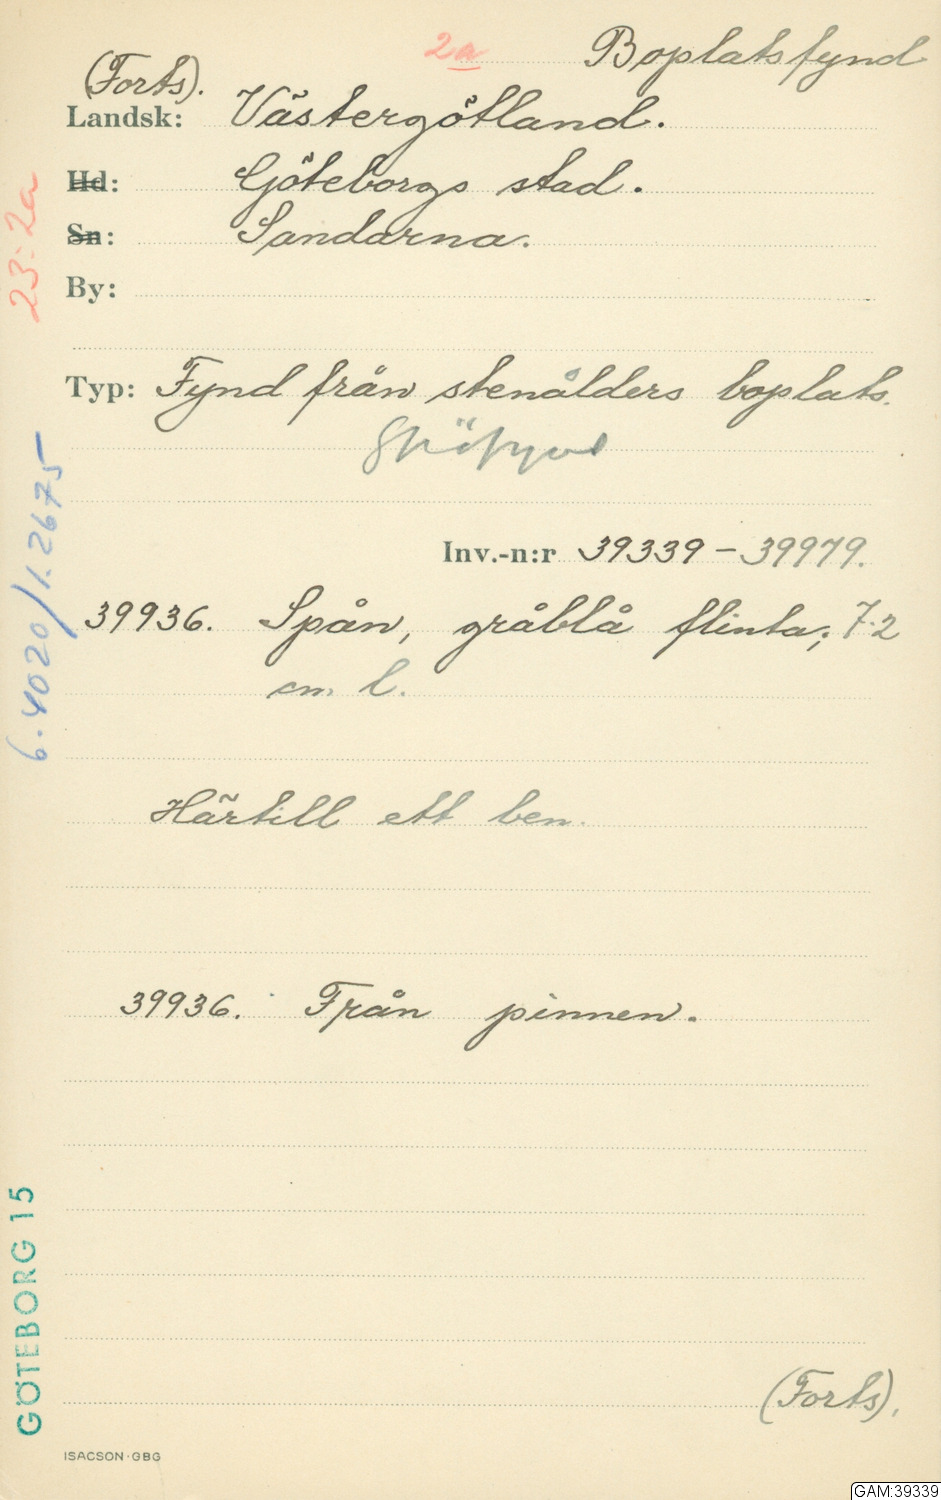 2a Boplatsfynd
(Forts).
Landsk: Västergötland.
Hd: Göteborgs stad.
Sn: Sandarna.
By:
Typ: Fynd från stenålders boplats.
Inv.-n:r 39339 - 39979.
39936. Spån, gråblå flinta; 7.2
cm. l.
Härtill ett ben.
39936. Från pinnen.
(Forts).
23:2a
6.4020/1.2675
GÖTEBORG 15
ISACSON·GBG
GAM:39339